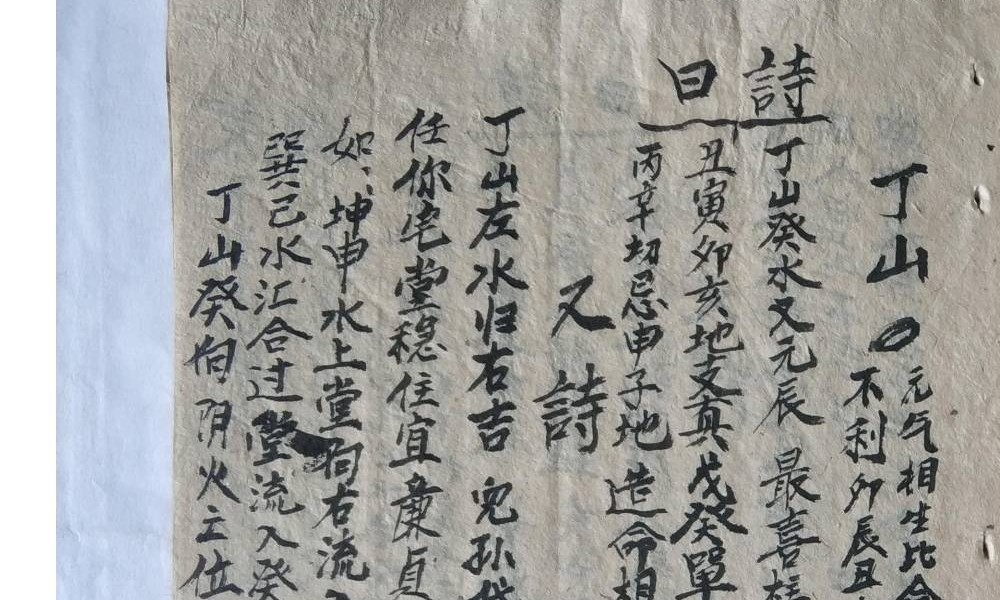 丁山
元气相生比
不利卯辰丑
詩曰
丁山癸水又元辰 最喜
丑寅卯亥地支真戊癸單
丙辛切忌申子地造命相
又詩
丁山左水归右吉 児孙
任你宅堂穏住宜廉貞
如坤申水上堂向右流
巽巳水汇合过堂流入癸
丁山癸向阴火立位